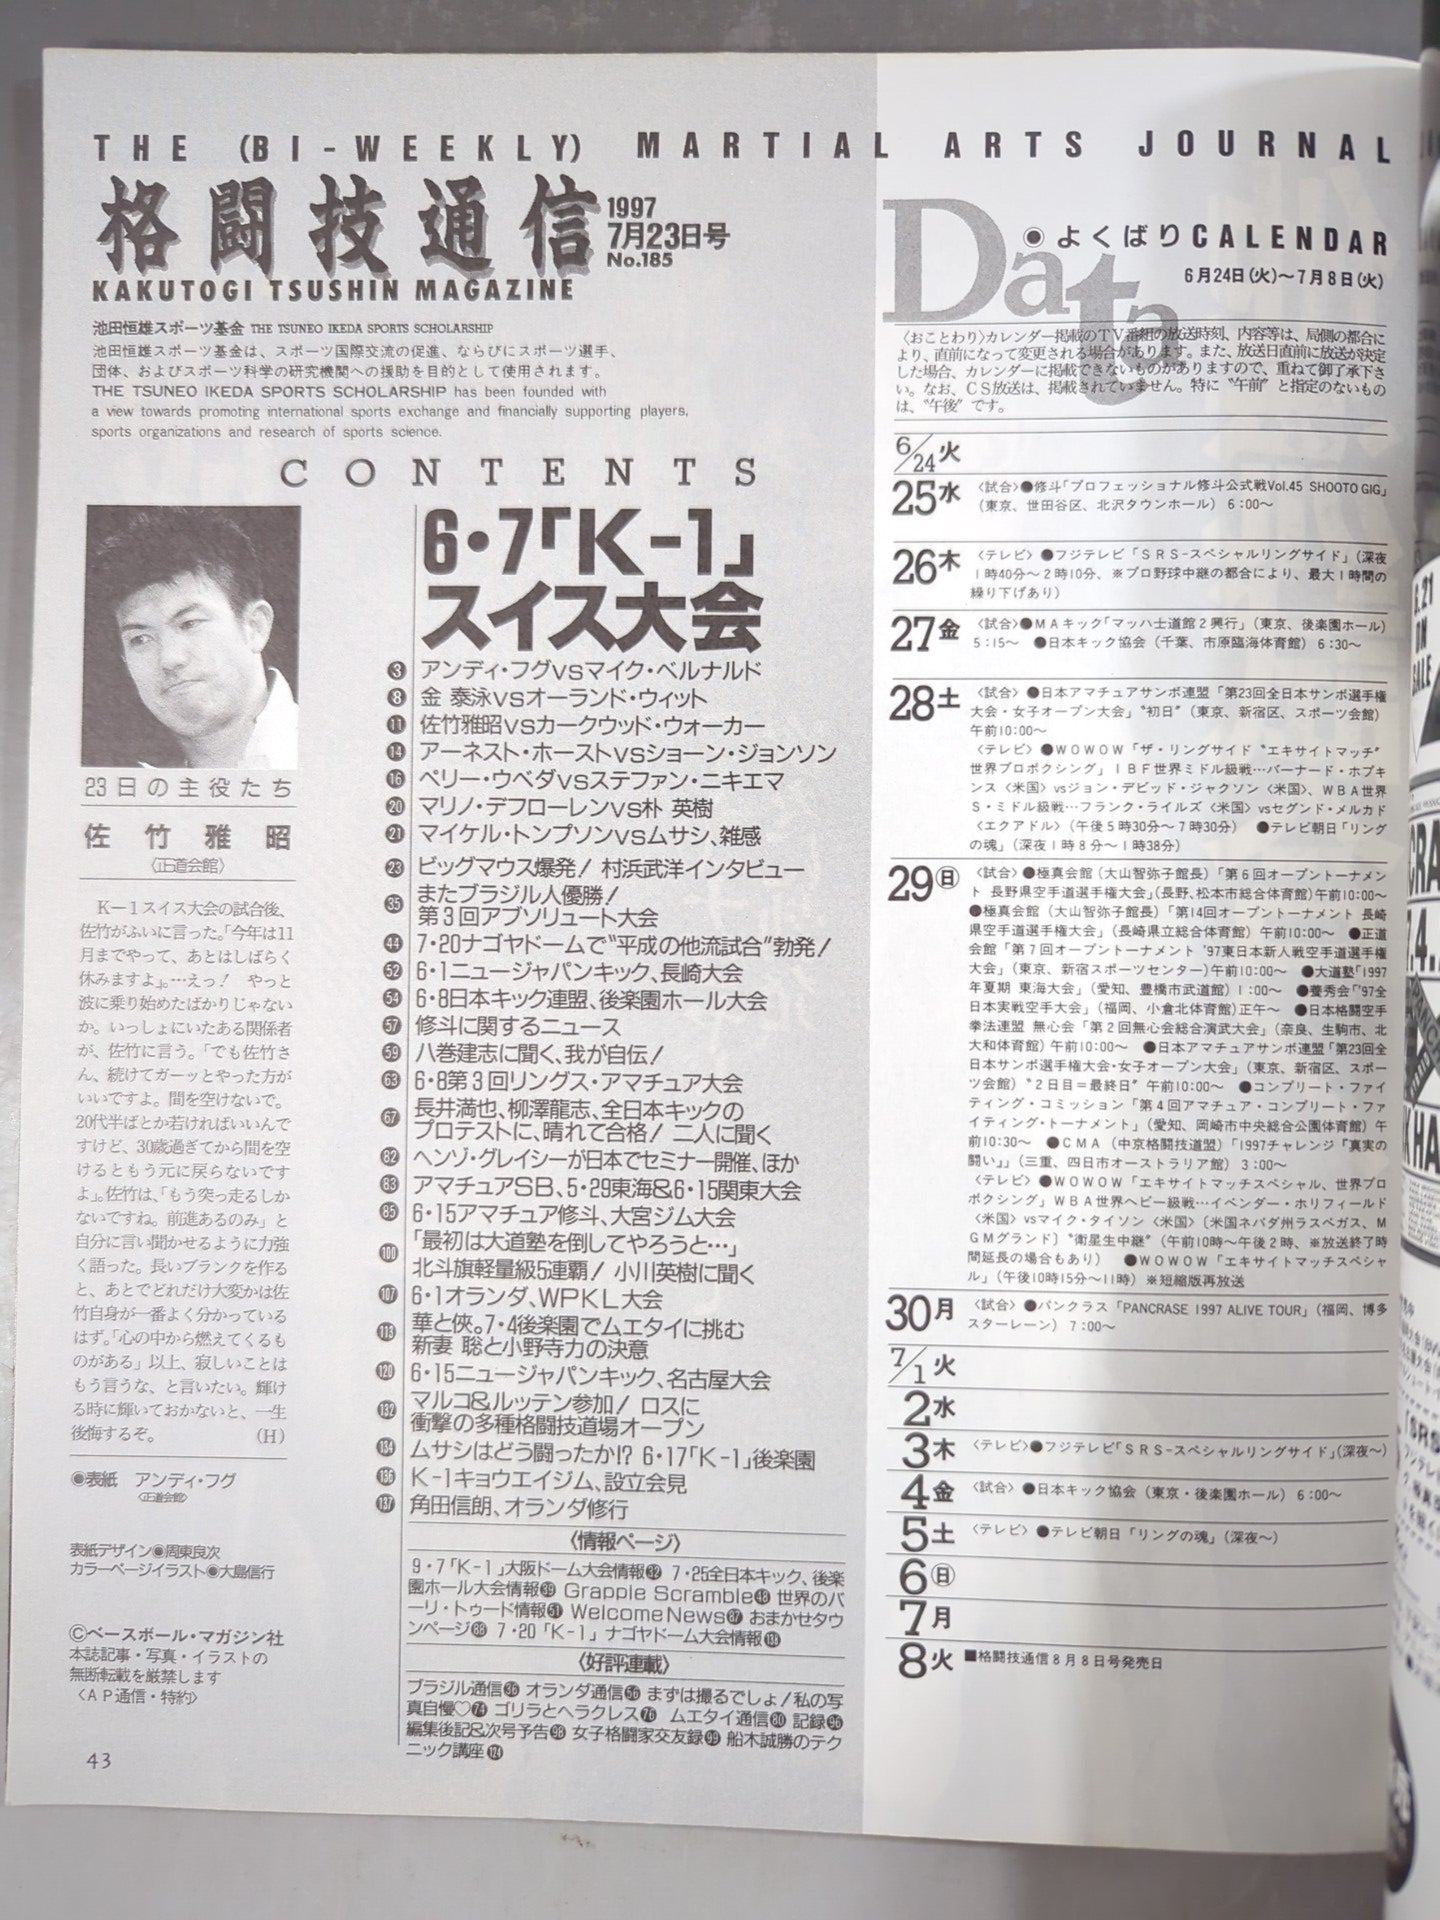 THE (BI-WEEKLY) MARTIAL ARTS JOURNAL
格闘技通信
1997
7月23日号
No.185
KAKUTOGI TSUSHIN MAGAZINE
池田恒雄スポーツ基金 THE TSUNEO IKEDA SPORTS SCHOLARSHIP
池田恒雄スポーツ基金は、スポーツ国際交流の促進、ならびにスポーツ選手、
団体、およびスポーツ科学の研究機関への援助を目的として使用されます。
THE TSUNEO IKEDA SPORTS SCHOLARSHIP has been founded with
a view towards promoting international sports exchange and financially supporting players,
sports organizations and research of sports science.
CONTENTS
23日の主役たち
佐竹雅昭
〈正道会館〉
K−1スイス大会の試合後、
佐竹がふいに言った。「今年は11
月までやって、あとはしばらく
休みますよ」。…えっ! やっと
波に乗り始めたばかりじゃない
か。いっしょにいたある関係者
が、佐竹に言う。「でも佐竹さ
ん、続けてガーッとやった方が
いいですよ。間を空けないで。
20代半ばとか若ければいいんで
すけど、30歳過ぎてから間を空
けるともう元に戻らないです
よ」。佐竹は、「もう突っ走るしか
ないですね。前進あるのみ」と
自分に言い聞かせるように力強
く語った。長いブランクを作る
と、あとでどれだけ大変かは佐
竹自身が一番よく分かっている
はず。「心の中から燃えてくるも
のがある」以上、寂しいことは
もう言うな、と言いたい。輝け
る時に輝いておかないと、一生
後悔するぞ。 (H)
◉表紙 アンディ・フグ
〈正道会館〉
表紙デザイン◉周東良次
カラーページイラスト◉大島信行
©ベースボール・マガジン社
本誌記事・写真・イラストの
無断転載を厳禁します
〈AP通信・特約〉
43
6・7「K-1」
スイス大会
3 アンディ・フグvsマイク・ベルナルド
8 金 泰泳vsオーランド・ウィット
11 佐竹雅昭vsカークウッド・ウォーカー
14 アーネスト・ホーストvsショーン・ジョンソン
16 ペリー・ウベダvsステファン・ニキエマ
20 マリノ・デフローレンvs朴 英樹
21 マイケル・トンプソンvsムサシ、雑感
23 ビッグマウス爆発! 村浜武洋インタビュー
35 またブラジル人優勝!
第3回アブソリュート大会
44 7・20ナゴヤドームで“平成の他流試合”勃発!
52 6・1ニュージャパンキック、長崎大会
54 6・8日本キック連盟、後楽園ホール大会
57 修斗に関するニュース
59 八巻建志に聞く、我が自伝!
63 6・8第3回リングス・アマチュア大会
67 長井満也、柳澤龍志、全日本キックの
プロテストに、晴れて合格! 二人に聞く
82 ヘンゾ・グレイシーが日本でセミナー開催、ほか
83 アマチュアSB、5・29東海&6・15関東大会
85 6・15アマチュア修斗、大宮ジム大会
100 「最初は大道塾を倒してやろうと…」
北斗旗軽量級5連覇! 小川英樹に聞く
107 6・1オランダ、WPKL大会
113 華と俠。7・4後楽園でムエタイに挑む
新妻 聡と小野寺力の決意
120 6・15ニュージャパンキック、名古屋大会
132 マルコ&ルッテン参加! ロスに
衝撃の多種格闘技道場オープン
134 ムサシはどう闘ったか!? 6・17「K-1」後楽園
136 K-1キョウエイジム、設立会見
137 角田信朗、オランダ修行
〈情報ページ〉
9・7「K-1」大阪ドーム大会情報32 7・25全日本キック、後楽
園ホール大会情報39 Grapple Scramble48 世界のバ
ーリ・トゥード情報51 Welcome News87 おまかせタウ
ンページ88 7・20「K-1」ナゴヤドーム大会情報138
〈好評連載〉
ブラジル通信36 オランダ通信56 まずは撮るでしょ!私の写
真自慢♡74 ゴリラとヘラクレス76 ムエタイ通信80 記録96
編集後記&次号予告98 女子格闘家交友録99 船木誠勝のテク
ニック講座124
Data
◉よくばりCALENDAR
6月24日(火)〜7月8日(火)
〈おことわり〉カレンダー掲載のTV番組の放送時刻、内容等は、局側の都合に
より、直前になって変更される場合があります。また、放送日直前に放送が決定
した場合、カレンダーに掲載できないものがありますので、重ねて御了承下さ
い。なお、CS放送は、掲載されていません。特に〝午前〟と指定のないもの
は、〝午後〟です。
6/24火
25水 〈試合〉●修斗「プロフェッショナル修斗公式戦Vol.45 SHOOTO GIG」
(東京、世田谷区、北沢タウンホール) 6:00〜
26木 〈テレビ〉●フジテレビ「SRS-スペシャルリングサイド」(深夜
1時40分〜2時10分、※プロ野球中継の都合により、最大1時間の
繰り下げあり)
27金 〈試合〉●MAキック「マッハ士道館2興行」(東京、後楽園ホール)
5:15〜 ●日本キック協会(千葉、市原臨海体育館) 6:30〜
28土 〈試合〉●日本アマチュアサンボ連盟「第23回全日本サンボ選手権
大会・女子オープン大会」〝初日〟(東京、新宿区、スポーツ会館)
午前10:00〜
〈テレビ〉●WOWOW「ザ・リングサイド〝エキサイトマッチ〟
世界プロボクシング」IBF世界ミドル級戦…バーナード・ホプキ
ンス〈米国〉vsジョン・デビッド・ジャクソン〈米国〉、WBA世界
S・ミドル級戦…フランク・ライルズ〈米国〉vsセグンド・メルカド
〈エクアドル〉(午後5時30分〜7時30分) ●テレビ朝日「リング
の魂」(深夜1時8分〜1時38分)
29日 〈試合〉●極真会館(大山智弥子館長)「第6回オープントーナメン
ト 長野県空手道選手権大会」(長野、松本市総合体育館)午前10:00〜
●極真会館(大山智弥子館長)「第14回オープントーナメント 長崎
県空手道選手権大会」(長崎県立総合体育館)午前10:00〜 ●正道
会館「第7回オープントーナメント '97東日本新人戦空手道選手権
大会」(東京、新宿スポーツセンター)午前10:00〜 ●大道塾「1997
年夏期 東海大会」(愛知、豊橋市武道館) 1:00〜 ●養秀会「'97全
日本実戦空手大会」(福岡、小倉北体育館)正午〜 ●日本格闘空手
拳法連盟 無心会「第2回無心会総合演武大会」(奈良、生駒市、北
大和体育館)午前10:00〜 ●日本アマチュアサンボ連盟「第23回全
日本サンボ選手権大会・女子オープン大会」(東京、新宿区、スポー
ツ会館)〝2日目=最終日〟午前10:00〜 ●コンプリート・ファイ
ティング・コミッション「第4回アマチュア・コンプリート・ファ
イティング・トーナメント」(愛知、岡崎市中央総合公園体育館)午
前10:30〜 ●CMA(中京格闘技道盟)「1997チャレンジ『真実の
闘い』」(三重、四日市オーストラリア館) 3:00〜
〈テレビ〉●WOWOW「エキサイトマッチスペシャル、世界プロ
ボクシング」WBA世界ヘビー級戦…イベンダー・ホリフィールド
〈米国〉vsマイク・タイソン〈米国〉〔米国ネバダ州ラスベガス、M
GMグランド〕〝衛星生中継〟(午前10時〜午後2時、※放送終了時
間延長の場合もあり) ●WOWOW「エキサイトマッチスペシャ
ル」(午後10時15分〜11時)※短縮版再放送
30月 〈試合〉●パンクラス「PANCRASE 1997 ALIVE TOUR」(福岡、博多
スターレーン) 7:00〜
7/1火
2水
3木 〈テレビ〉●フジテレビ「SRS-スペシャルリングサイド」(深夜〜)
4金 〈試合〉●日本キック協会(東京・後楽園ホール) 6:00〜
5土 〈テレビ〉●テレビ朝日「リングの魂」(深夜〜)
6日
7月
8火 ■格闘技通信8月8日号発売日